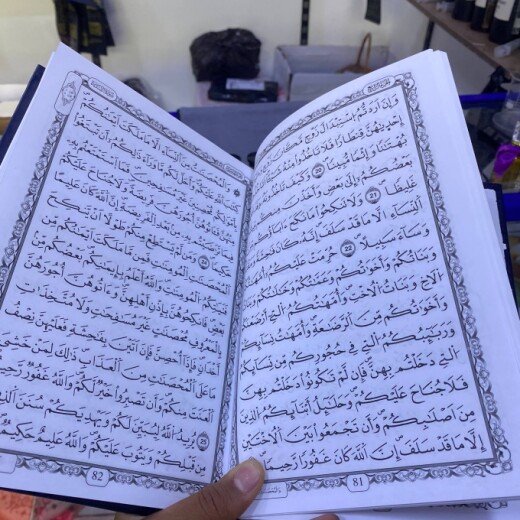 وَإِنْ أَرَدتُّمُ اسْتِبْدَالَ زَوْجٍ مَّكَانَ
إِحْدَاهُنَّ قِنطَارًا فَلَا تَأْخُذُوا مِنْهُ
بُهْتَانًا وَإِثْمًا مُّبِينًا ٢٠ وَكَيْفَ تَأْخُذُونَهُ
بَعْضُكُمْ إِلَىٰ بَعْضٍ وَأَخَذْنَ مِنكُم
غَلِيظًا ٢١ وَلَا تَنكِحُوا مَا نَكَحَ ءَابَاؤُكُم
النِّسَاءِ إِلَّا مَا قَدْ سَلَفَ إِنَّهُ كَانَ فَاحِشَةً
وَسَاءَ سَبِيلًا ٢٢ حُرِّمَتْ عَلَيْكُمْ أُمَّهَاتُكُمْ
وَبَنَاتُكُمْ وَأَخَوَاتُكُمْ وَعَمَّاتُكُمْ وَخَالَاتُكُمْ وَبَنَاتُ
الْأَخِ وَبَنَاتُ الْأُخْتِ وَأُمَّهَاتُكُمُ الَّاتِي أَرْضَعْنَكُمْ
وَأَخَوَاتُكُم مِّنَ الرَّضَاعَةِ وَأُمَّهَاتُ نِسَائِكُمْ
وَرَبَائِبُكُمُ الَّاتِي فِي حُجُورِكُم مِّن نِّسَائِكُمُ
الَّاتِي دَخَلْتُم بِهِنَّ فَإِن لَّمْ تَكُونُوا دَخَلْتُم بِهِنَّ
فَلَا جُنَاحَ عَلَيْكُمْ وَحَلَائِلُ أَبْنَائِكُمُ الَّذِينَ
مِنْ أَصْلَابِكُمْ وَأَن تَجْمَعُوا بَيْنَ الْأُخْتَيْنِ
إِلَّا مَا قَدْ سَلَفَ إِنَّ اللَّهَ كَانَ غَفُورًا رَّحِيمًا
81
وَالْمُحْصَنَاتُ مِنَ النِّسَاءِ إِلَّا مَا مَلَكَتْ أَيْمَانُكُمْ
كِتَابَ اللَّهِ عَلَيْكُمْ وَأُحِلَّ لَكُم مَّا وَرَاءَ ذَٰلِكُمْ أَن تَبْتَغُوا
بِأَمْوَالِكُم مُّحْصِنِينَ غَيْرَ مُسَافِحِينَ فَمَا اسْتَمْتَعْتُم بِهِ
مِنْهُنَّ فَآتُوهُنَّ أُجُورَهُنَّ فَرِيضَةً وَلَا جُنَاحَ عَلَيْكُمْ
فِيمَا تَرَاضَيْتُم بِهِ مِن بَعْدِ الْفَرِيضَةِ إِنَّ اللَّهَ كَانَ عَلِيمًا
حَكِيمًا ٢٤ وَمَن لَّمْ يَسْتَطِعْ مِنكُمْ طَوْلًا أَن يَنكِحَ
الْمُحْصَنَاتِ الْمُؤْمِنَاتِ فَمِن مَّا مَلَكَتْ أَيْمَانُكُم مِّن
فَتَيَاتِكُمُ الْمُؤْمِنَاتِ وَاللَّهُ أَعْلَمُ بِإِيمَانِكُم بَعْضُكُم مِّن
بَعْضٍ فَانكِحُوهُنَّ بِإِذْنِ أَهْلِهِنَّ وَءَاتُوهُنَّ أُجُورَهُنَّ
بِالْمَعْرُوفِ مُحْصَنَاتٍ غَيْرَ مُسَافِحَاتٍ وَلَا مُتَّخِذَاتِ
أَخْدَانٍ فَإِذَا أُحْصِنَّ فَإِنْ أَتَيْنَ بِفَاحِشَةٍ فَعَلَيْهِنَّ نِصْفُ
مَا عَلَى الْمُحْصَنَاتِ مِنَ الْعَذَابِ ذَٰلِكَ لِمَنْ خَشِيَ
الْعَنَتَ مِنكُمْ وَأَن تَصْبِرُوا خَيْرٌ لَّكُمْ وَاللَّهُ غَفُورٌ رَّحِيمٌ
٢٥ يُرِيدُ اللَّهُ لِيُبَيِّنَ لَكُمْ وَيَهْدِيَكُمْ سُنَنَ الَّذِينَ
مِن قَبْلِكُمْ وَيَتُوبَ عَلَيْكُمْ وَاللَّهُ عَلِيمٌ حَكِيمٌ
82